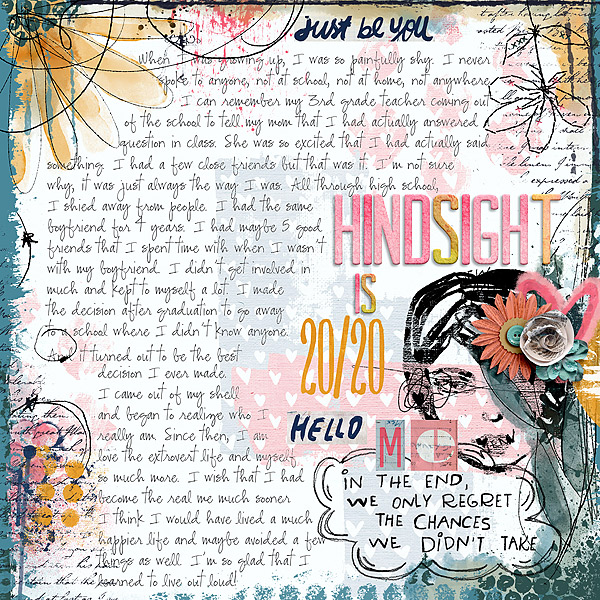 just be you
When I was growing up, I was so painfully shy. I never
spoke to anyone, not at school, not at home, not anywhere.
I can remember my 3rd grade teacher coming out
of the school to tell my mom that I had actually answered a
question in class. She was so excited that I had actually said
something. I had a few close friends but that was it. I'm not sure
why, it was just always the way I was. All through high school,
I shied away from people. I had the same
boyfriend for 4 years. I had maybe 5 good
friends that I spent time with when I wasn't
with my boyfriend. I didn't get involved in
much and kept to myself a lot. I made
the decision after graduation to go away
to a school where I didn't know anyone.
And it turned out to be the best
decision I ever made.
I came out of my shell
and began to realize who I
really am. Since then, I am
love the extrovert life and myself
so much more. I wish that I had
become the real me much sooner.
I think I would have lived a much
happier life and maybe avoided a few
things as well. I'm so glad that I
learned to live out loud!
HINDSIGHT
IS
20/20
HELLO
ME
IN THE END,
WE ONLY REGRET
THE CHANCES
WE DIDN'T TAKE